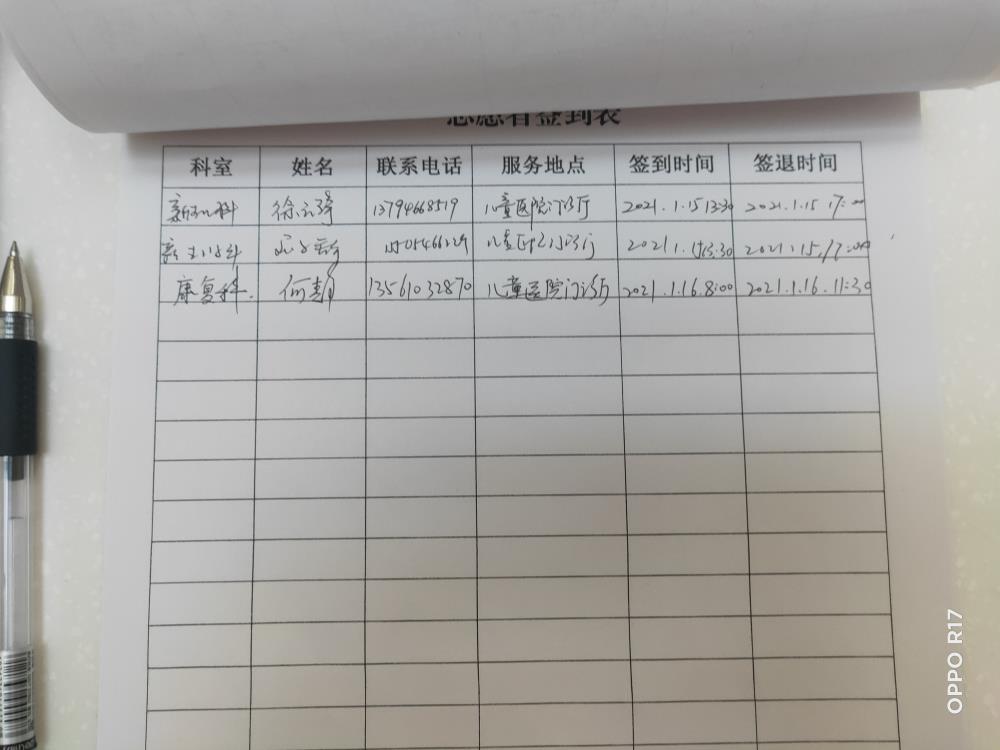 志愿者签到表
科室 姓名 联系电话 服务地点 签到时间 签退时间
新初科 徐 13794668519 儿童医院门诊厅 2021.1.15 13:30 2021.1.15 17:00
儿童医院门诊厅 2021.1.15 13:30 2021.1.15 17:00
康复科 何 13561032870 儿童医院门诊厅 2021.1.16 8:00 2021.1.16 11:30
OPPO R17